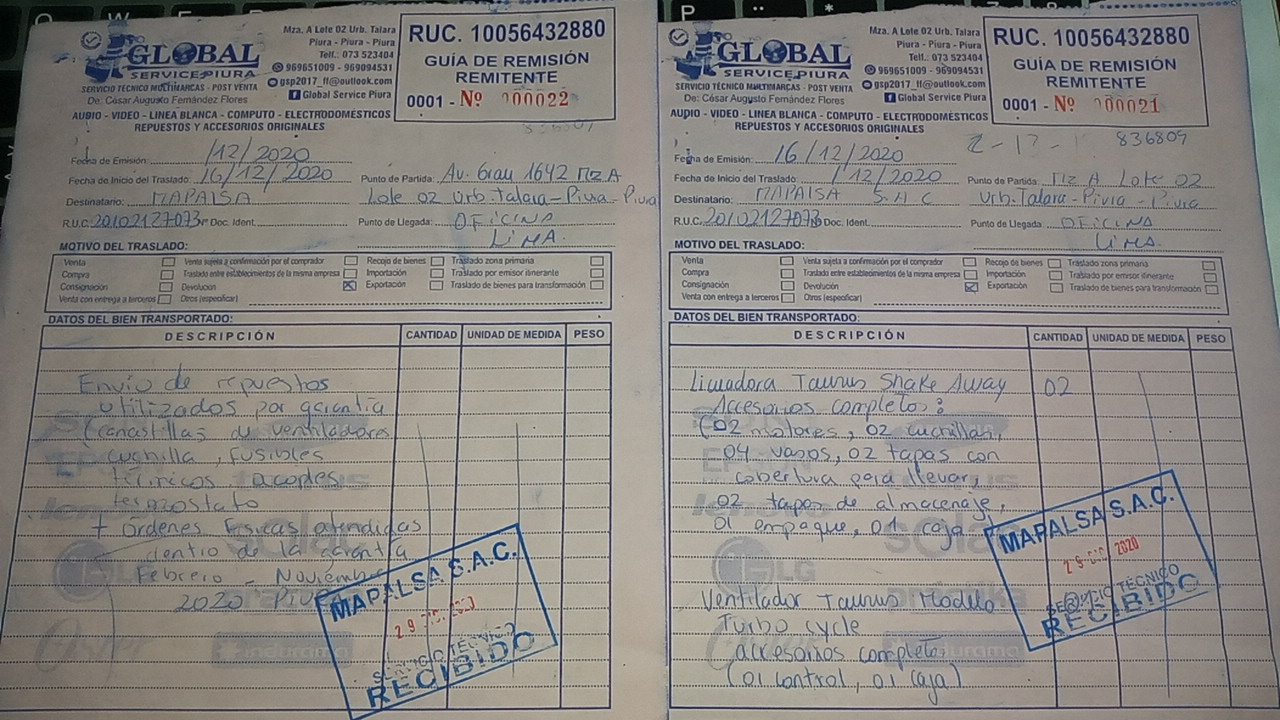 GLOBAL
SERVICE PIURA
SERVICIO TÉCNICO MULTIMARCAS - POST VENTA
De: César Augusto Fernández Flores
Mza. A Lote 02 Urb. Talara
Piura - Piura - Piura
Telf.: 073 523404
969651009 - 969094531
gsp2017_ff@outlook.com
Global Service Piura
AUDIO - VIDEO - LINEA BLANCA - COMPUTO - ELECTRODOMÉSTICOS
REPUESTOS Y ACCESORIOS ORIGINALES
RUC. 10056432880
GUÍA DE REMISIÓN
REMITENTE
0001 - Nº 000022
Fecha de Emisión: /12/2020
Fecha de Inicio del Traslado: 16/12/2020
Punto de Partida: Av. Grau 1642 Mz A
Destinatario: MAPALSA
Lote 02 Urb. Talara - Piura - Piura
R.U.C. 20102127073 Nº Doc. Ident.
Punto de Llegada: OFICINA
LIMA.
MOTIVO DEL TRASLADO:
Venta
Venta sujeta a confirmación por el comprador
Recojo de bienes
Traslado zona primaria
Compra
Traslado entre establecimientos de la misma empresa
Importación
Traslado por emisor itinerante
Consignación
Devolución
Exportación
Traslado de bienes para transformación
Venta con entrega a terceros
Otros (especificar)
DATOS DEL BIEN TRANSPORTADO:
DESCRIPCIÓN CANTIDAD UNIDAD DE MEDIDA PESO
Envío de repuestos
utilizados por garantía
(canastillas de ventiladores
cuchilla, fusibles
térmicos acoples,
termostato
+ Órdenes físicas atendidas
dentro de la garantía
Febrero - Noviembre
2020
MAPALSA S.A.C.
SERVICIO TÉCNICO
RECIBIDO
GLOBAL
SERVICE PIURA
SERVICIO TÉCNICO MULTIMARCAS - POST VENTA
De: César Augusto Fernández Flores
Mza. A Lote 02 Urb. Talara
Piura - Piura - Piura
Telf.: 073 523404
969651009 - 969094531
gsp2017_ff@outlook.com
Global Service Piura
AUDIO - VIDEO - LINEA BLANCA - COMPUTO - ELECTRODOMÉSTICOS
REPUESTOS Y ACCESORIOS ORIGINALES
RUC. 10056432880
GUÍA DE REMISIÓN
REMITENTE
0001 - Nº 000021
836809
Fecha de Emisión: 16/12/2020
Fecha de Inicio del Traslado: /12/2020
Punto de Partida: Mz A Lote 02
Destinatario: MAPALSA S.A.C
Urb. Talara - Piura - Piura
R.U.C. 20102127073 Nº Doc. Ident.
Punto de Llegada: OFICINA
LIMA.
MOTIVO DEL TRASLADO:
Venta
Venta sujeta a confirmación por el comprador
Recojo de bienes
Traslado zona primaria
Compra
Traslado entre establecimientos de la misma empresa
Importación
Traslado por emisor itinerante
Consignación
Devolución
Exportación
Traslado de bienes para transformación
Venta con entrega a terceros
Otros (especificar)
DATOS DEL BIEN TRANSPORTADO:
DESCRIPCIÓN CANTIDAD UNIDAD DE MEDIDA PESO
Licuadora Taurus Shake Away 02
Accesorios completos:
(02 motores, 02 cuchillas,
04 vasos, 02 tapas con
cobertura para llevar,
02 tapas de almacenaje,
01 empaque, 01 caja
Ventilador Taurus Modelo
Turbo cycle
accesorios completo
(01 control, 01 caja)
MAPALSA S.A.C.
29 DIC 2020
SERVICIO TÉCNICO
RECIBIDO